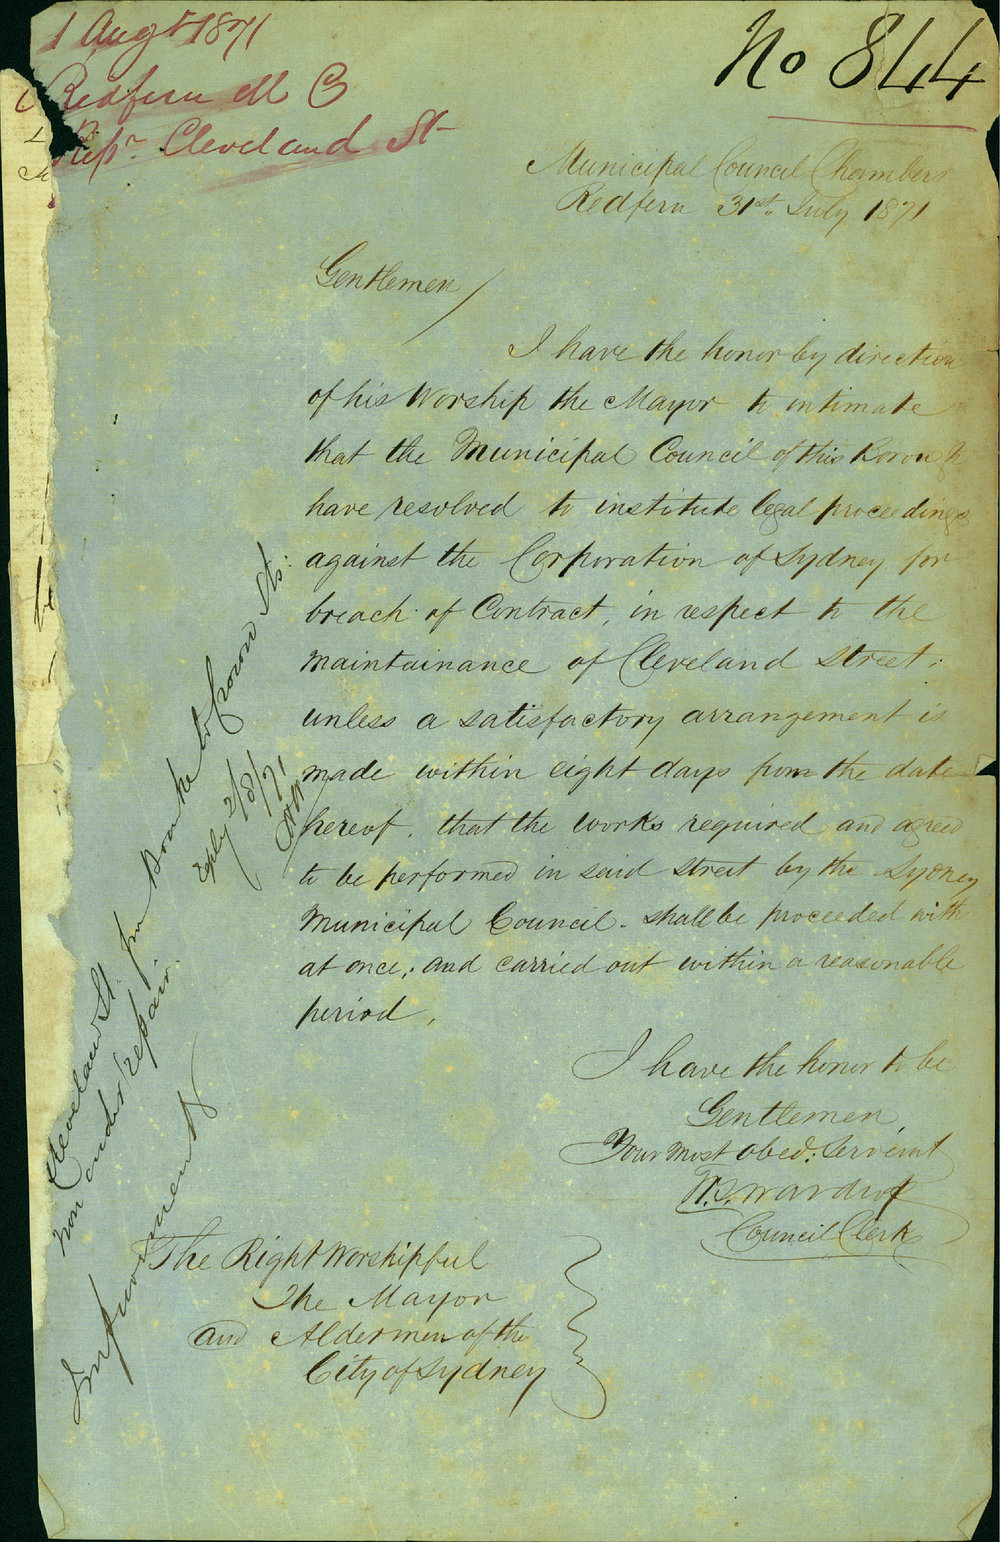 1 Augt 1871
Redfern M C
Repr. Cleveland St
No 844
Municipal Council Chambers
Redfern 31st. July 1871
Gentlemen
I have the honor by direction
of his Worship the Mayor to intimate
that the Municipal Council of this Borough
have resolved to institute legal proceedings
against the Corporation of Sydney for
breach of Contract, in respect to the
maintainance of Cleveland Street;
unless a satisfactory arrangement is
made within eight days from the date
hereof, that the works required and agreed
to be performed in said Street by the Sydney
Municipal Council. shall be proceeded with
at once, and carried out within a reasonable
period,
I have the honor to be
Gentlemen
Your most obed. Servant
Wardrop
Council Clerk
The Right Worshipful
The Mayor
and Aldermen of the
City of Sydney
Cleveland St. from Bourke to Crown Sts.
now under repair.
reply 2/8/71
Improvements
be